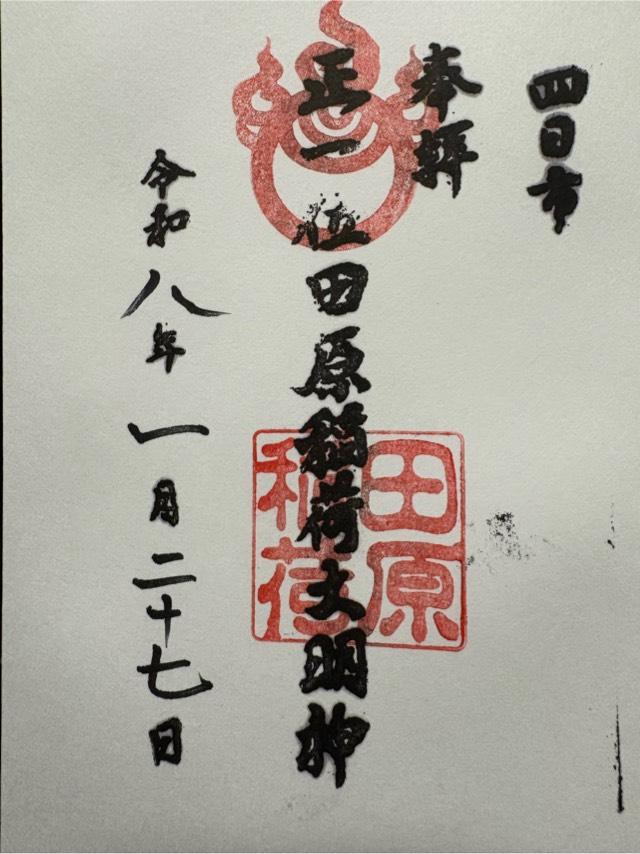 四日市
奉拝
正一位田原稲荷大明神
田原
稲荷
令和八年一月二十七日